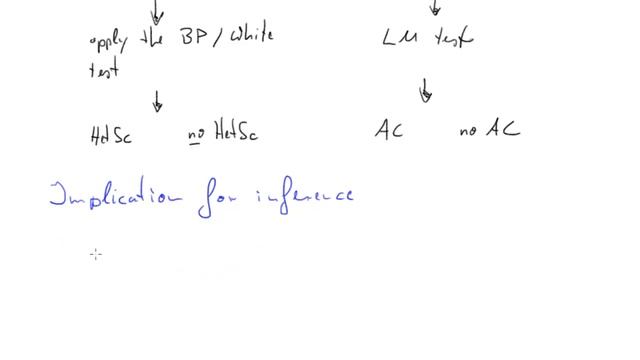 apply the BP / White
test
LM test
HetSc
no HetSc
AC
no AC
Implication for inference